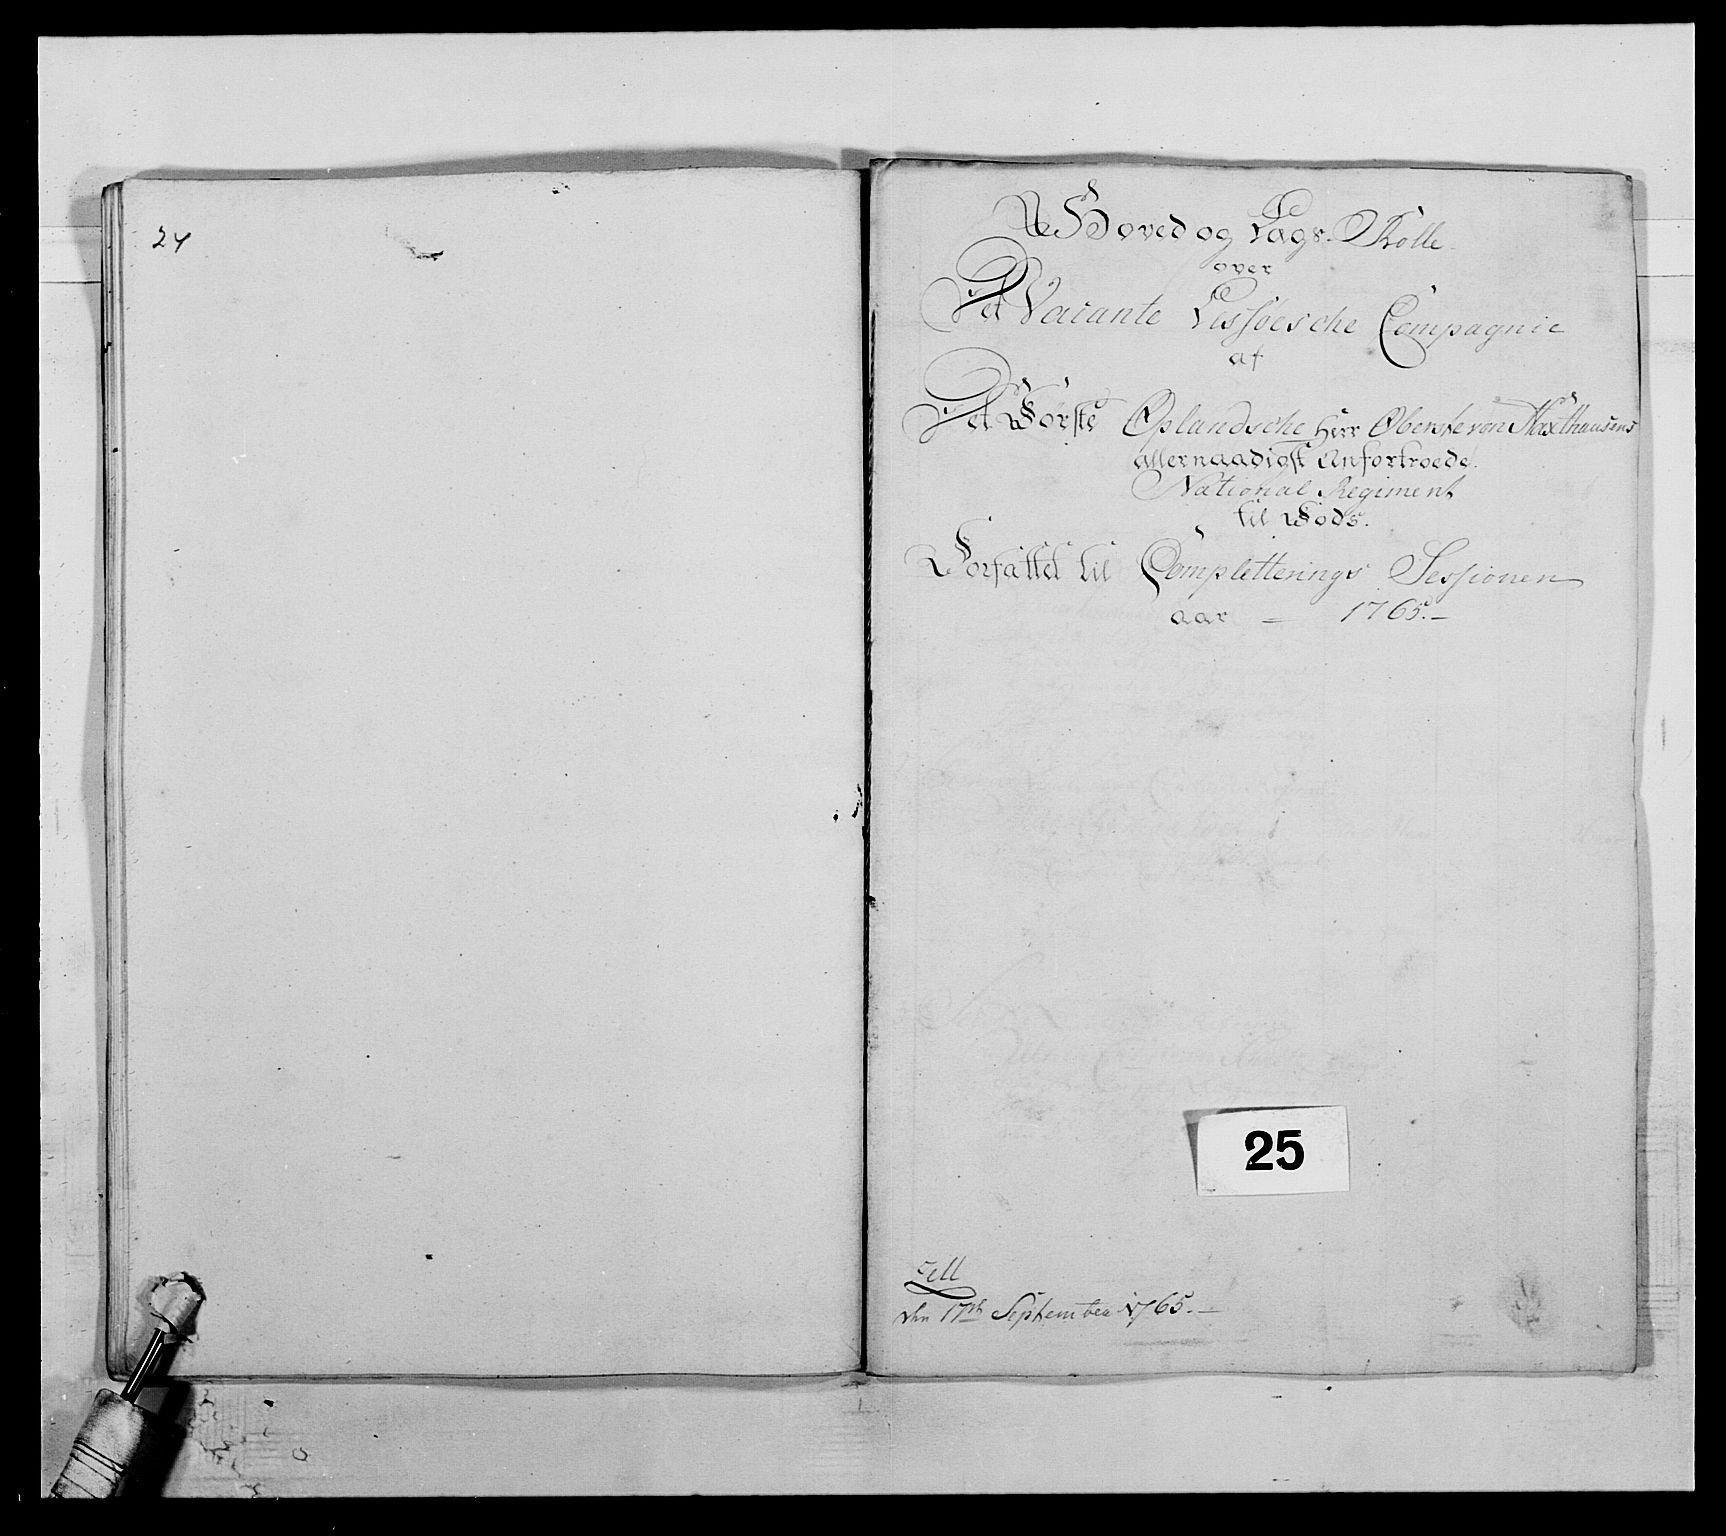 24
Hoved og Lægs-Rolle
over
Det Vacante Lessøesche Compagnie
af
Det Førsté Oplandsche Herr Oberste von Haxthausens
allernaadigst Anfortroede
National Regiment
til Fods.
Forfattet til Completterings Sessionen
aar – 1765.–
25
Zell
den 17de September 1765.–